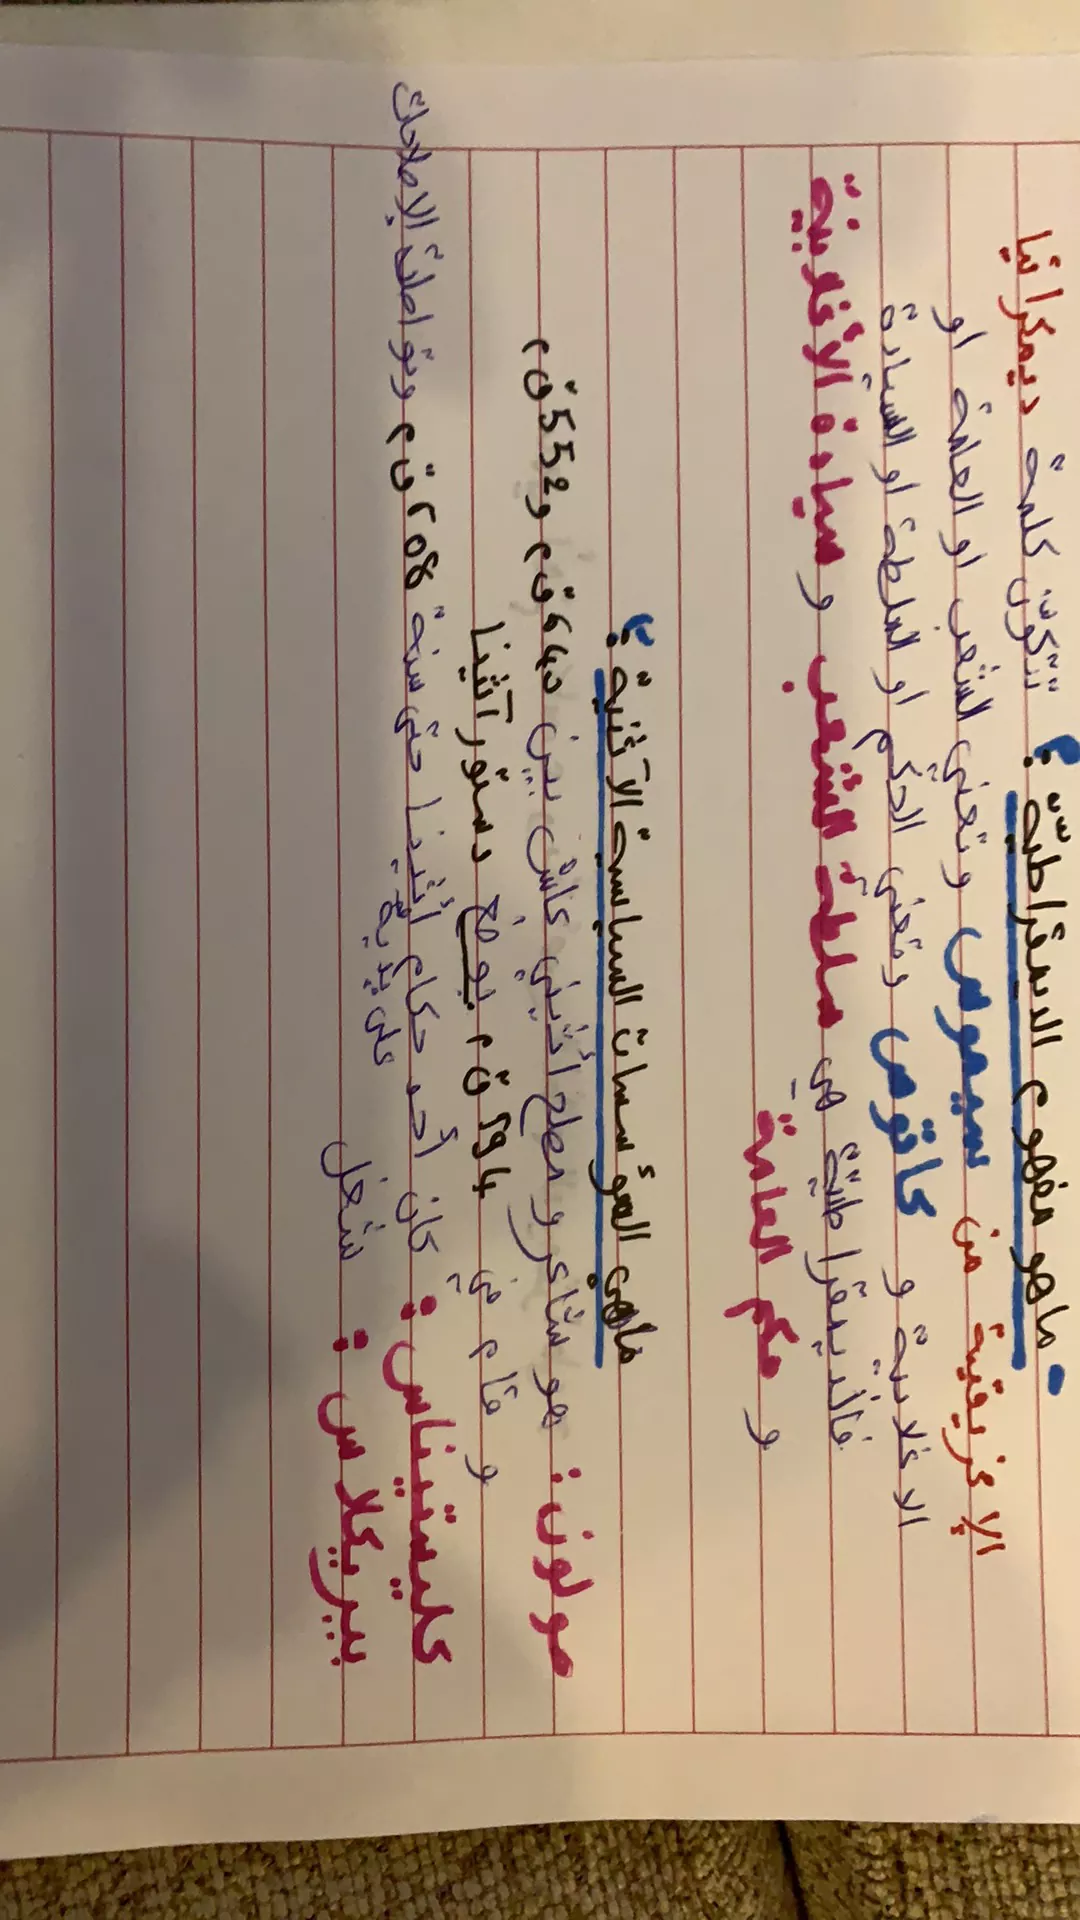 - ماهو مفهوم الديمقراطية ؟ تتكون كلمة ديمكراتيا
الإغريقية من سيموس وتعني الشعب او العامة او
الاغلابية و كاتوس وتعني الحكم او السلطة او السيادة
فالديمقراطية هي سلطة الشعب و سيادة الأغلابية
و حكم العامة
ماهي المؤسسات السياسية الآثنية ؟
صولون : هو شاعر و مصلح أثيني عاش بين 640 ق م و 552 ق م
و قام في 594 ق م بوضع دستور آثينا
كليستيناس : كان أحد حكام أثينا حتى سنة 508 ق م وتواصلت الإصلاحات
على يديه
بيريكلاس : شغل